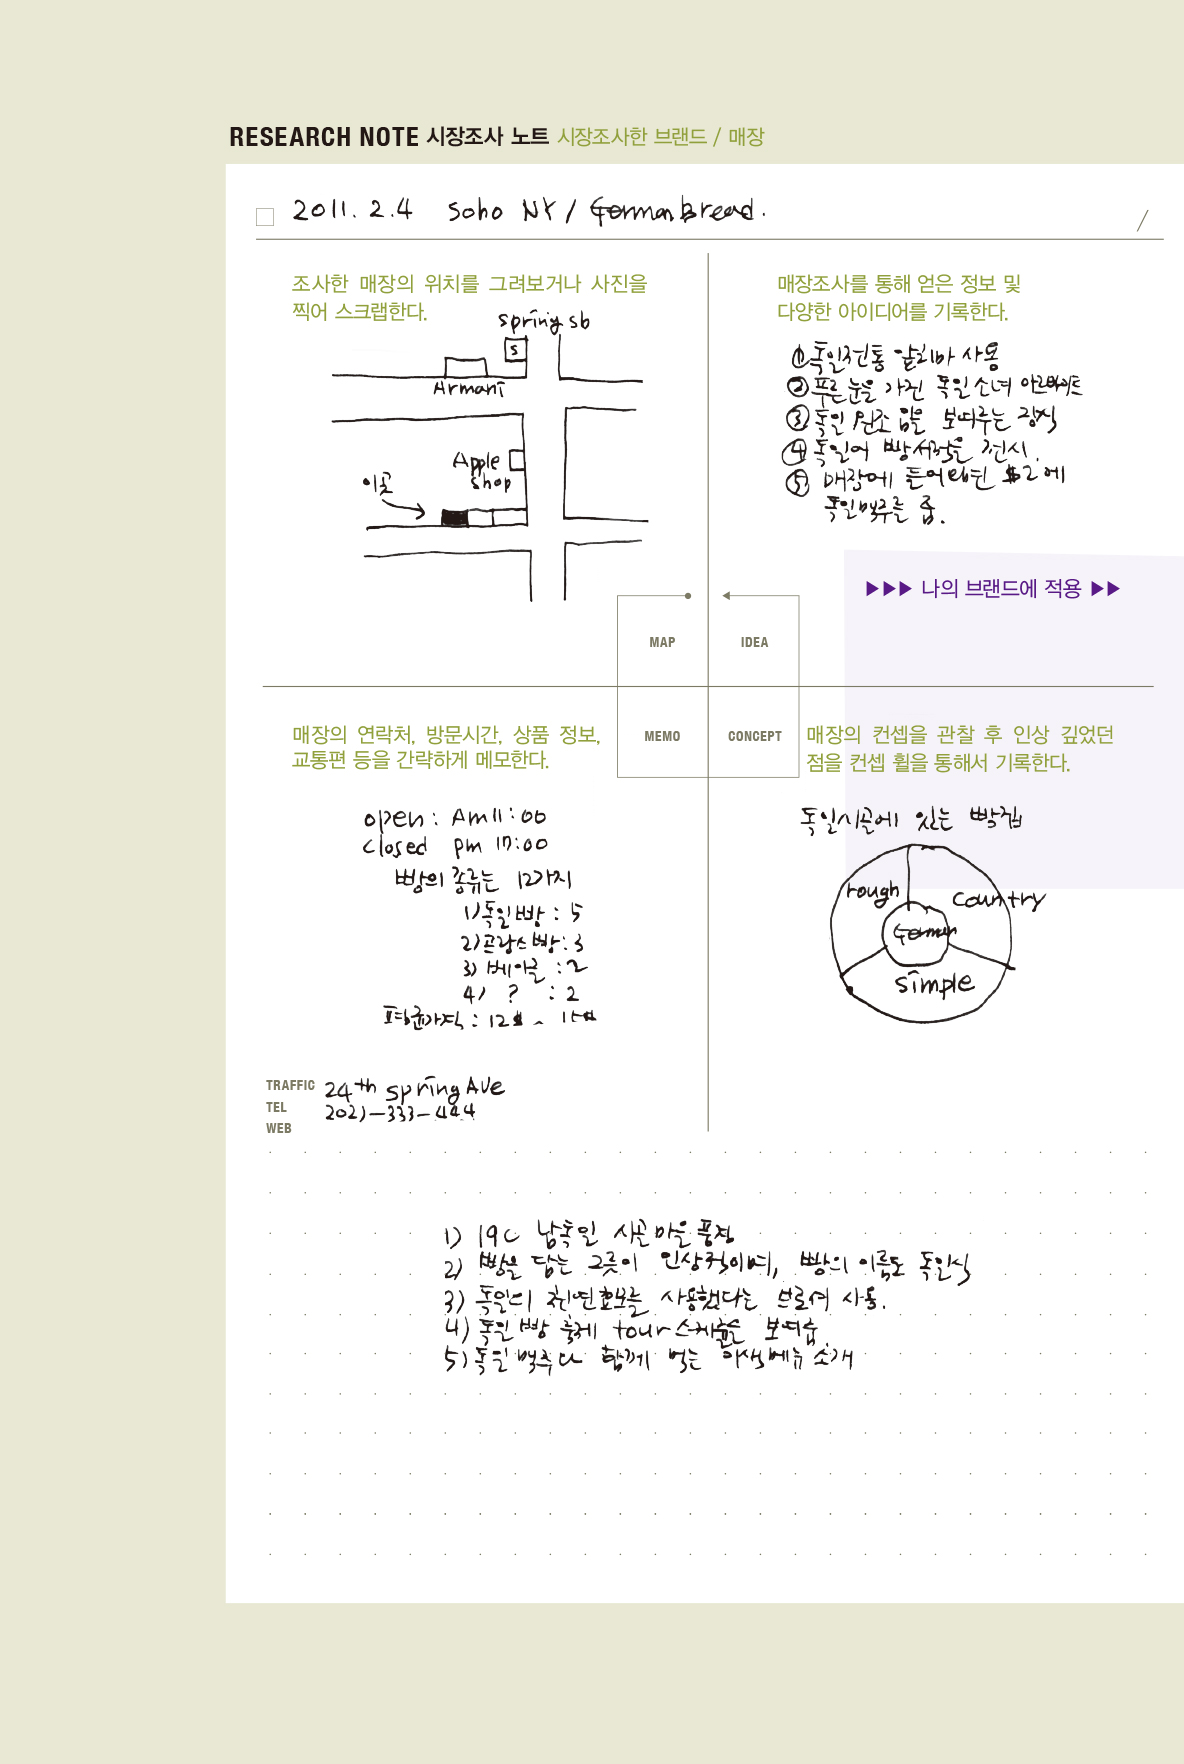 RESEARCH NOTE 시장조사 노트 시장조사한 브랜드 / 매장
2011. 2. 4 Soho NY / German bread.
/
조사한 매장의 위치를 그려보거나 사진을
찍어 스크랩한다.
spring sb
S
Armani
Apple
shop
이곳
매장조사를 통해 얻은 정보 및
다양한 아이디어를 기록한다.
① 독일전통 앞치마 사용
② 푸른눈을 가진 독일소녀 아르바이트
③ 독일 원조임을 보여주는 장식
④ 독일어 빵서적을 전시.
⑤ 매장에 들어가면 $2에
독일맥주를 줌.
▶▶▶ 나의 브랜드에 적용 ▶▶
MAP
IDEA
MEMO
CONCEPT
매장의 연락처, 방문시간, 상품 정보,
교통편 등을 간략하게 메모한다.
open : Am 11:00
closed pm 17:00
빵의 종류는 12가지
1) 독일빵 : 5
2) 프랑스빵 : 3
3) 베이글 : 2
4) ? : 2
평균가격 : 12$ ~
TRAFFIC 24th spring AVe
TEL 202)-333-444
WEB
매장의 컨셉을 관찰 후 인상 깊었던
점을 컨셉 휠을 통해서 기록한다.
독일시골에 있는 빵집
rough
country
German
simple
1) 19C 남독일 시골마을 풍경
2) 빵을 담는 그릇이 인상적이며, 빵의 이름도 독일식
3) 독일의 천연효모를 사용했다는 브로셔 사용.
4) 독일 빵 축제 tour 스케줄을 보여줌.
5) 독일 맥주와 함께 먹는 이색메뉴 소개